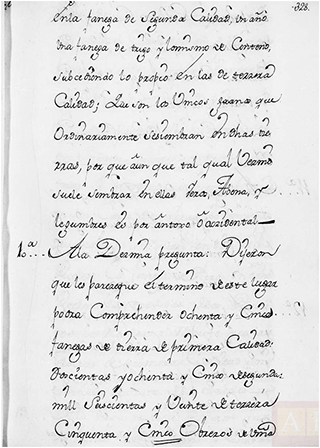 328.
enla fanega de Segunda Calidad, un año
Una fanega de trigo y lomismo de Centeno,
subcediendo lo propio en las de terzera
Calidad; Que son los Unicos granos que
Ordinariamente sesiembran en dhas tie
rras, por que aun que tal qual Vecino
suele sembrar en ellas
legumbres es por
10ª... Ala Dezima pregunta: Dijeron
que les pareze que el termino de este lugar
podra Comprehender ochenta y Cinco
fanegas de tierra de primera Calidad:
Doscientas y ochenta y Cinco de segunda:
mill Seiscientas y Veinte de terzera
Cinquenta y Cinco Obreros de Viña